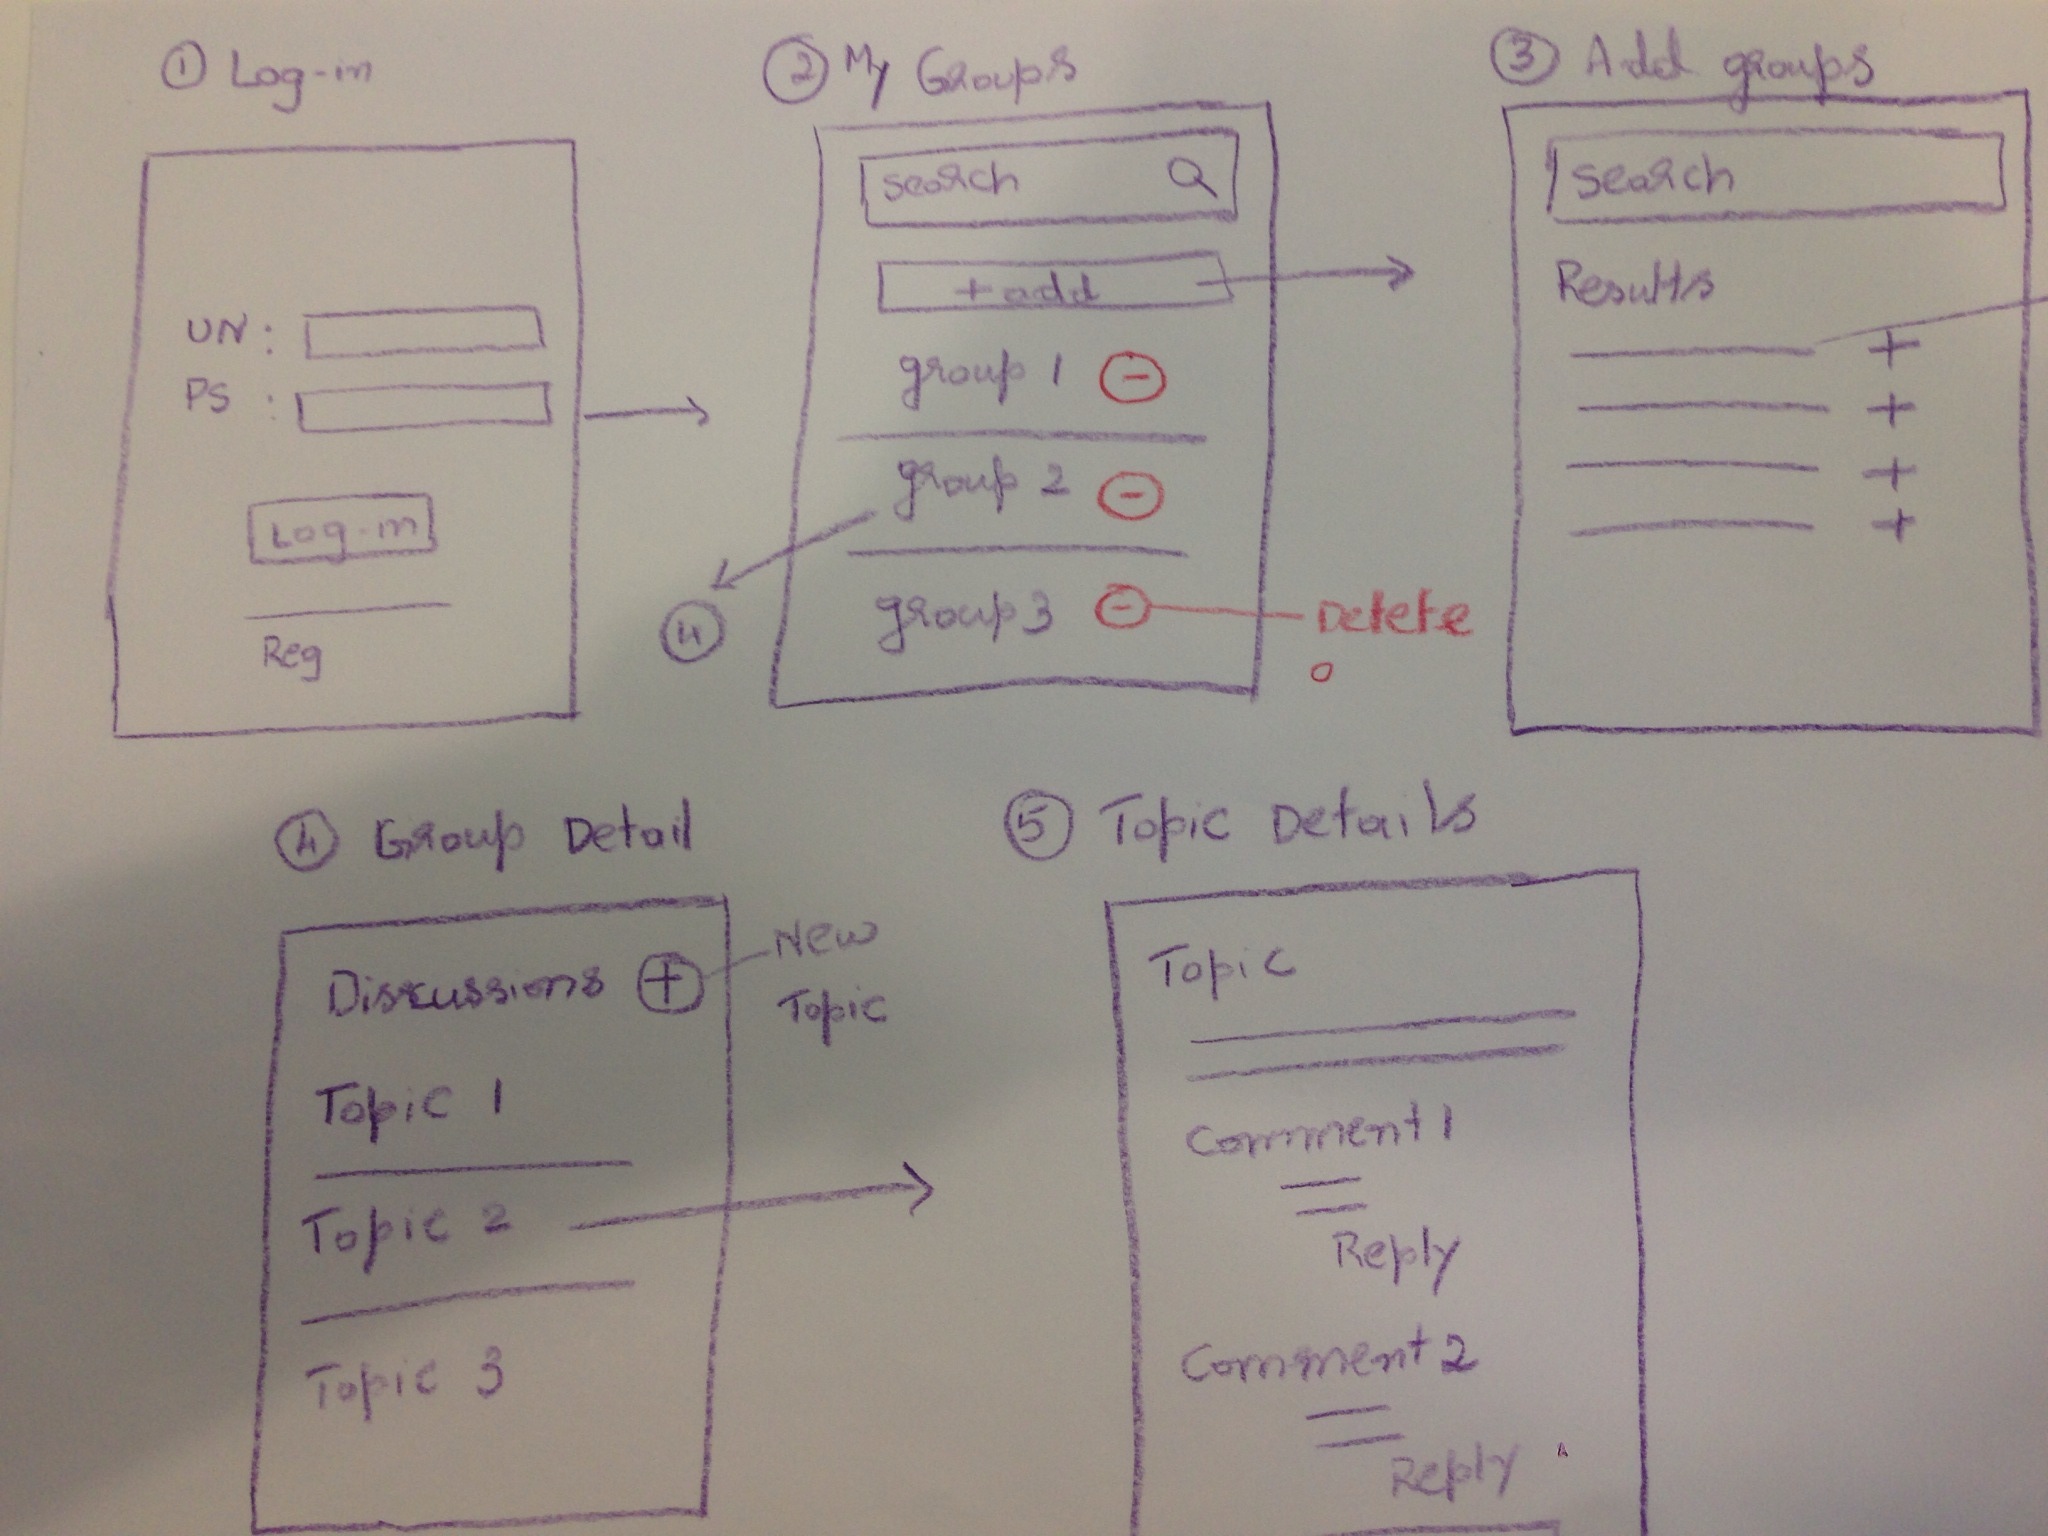 ① Log-in
UN :
PS :
Log-in
Reg
② My Groups
search
+ add
group 1 -
group 2 -
④
group 3 - Delete
③ Add groups
search
Results
+
+
+
+
④ Group Detail
Discussions + New
Topic
Topic 1
Topic 2
Topic 3
⑤ Topic Details
Topic
Comment 1
Reply
Comment 2
Reply